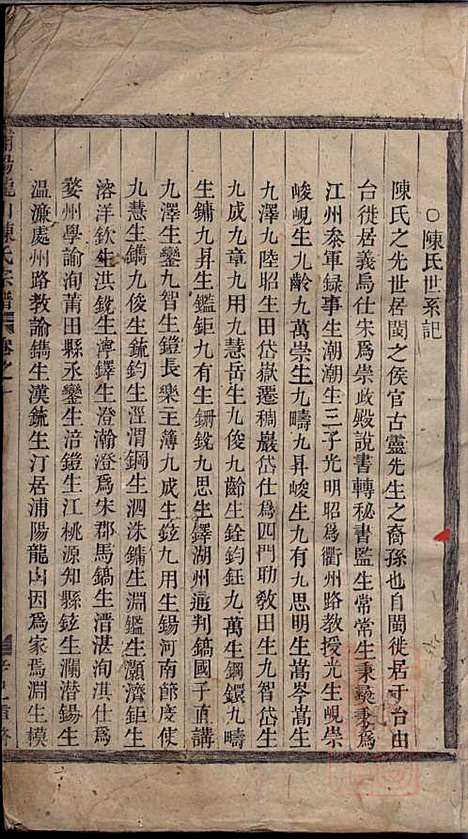 ○陳氏世系記
陳氏之先世居閩之侯官古靈先生之裔孫也自閩徙居于台由
台徙居義烏仕宋爲崇政殿說書轉秘書監生常常生秉彜秉爲
江州叅軍録事生潮潮生三子光明昭爲衢州路教授光生峴崇
峻峴生九齡九萬崇生九疇九昇峻生九有九思明生蒿岑蒿生
九澤九陸昭生田岱嶽遷稠巖岱仕爲四門助敎田生九智岱生
九成九章九用九慧岳生九俊九齡生銓鈞鈺九萬生鋼鐶九疇
生鏞九昇生鑑鉅九有生鉶銳九思生鐸湖州通判鎬國子直講
九澤生鑾九智生鎧長樂主簿九成生鉉九用生鍚河南節度使
九慧生鐫九俊生銃鈞生涇渭鋼生泗洙鏞生淵鑑生灝濟鉅生
溶洋欽生洪銳生濘鐸生澄瀚澄爲宋郡馬鎬生溍湛洵淇仕爲
婺州學諭洵莆田縣丞鑾生涪鎧生江桃源知縣鉉生瀾潛鍚生
温濂處州路教諭鐫生漢銃生汀居浦陽龍山因爲家焉淵生模
浦陽龍山陳氏宗譜 卷之一